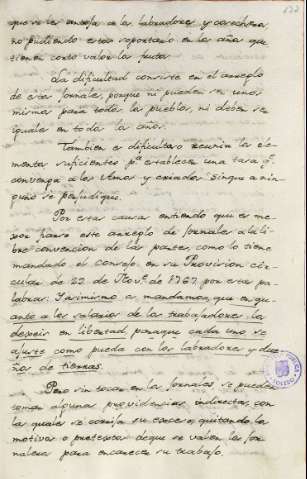 que se ven en ella a los labradores y cosecheros
no pudiendo estos soportarlo en los años que
tienen corto valor los frutos.
La dificultad consiste en el arreglo
de esos jornales, porque ni pueden ser unos
mismos para todos los pueblos, ni deben ser
iguales en todos los años.
Tambien es dificultoso reunir los ele-
mentos suficientes pª establecer una tasa q.e
convenga a los Amos y criados sin que a nin-
guno se perjudique.
Por estas causas entiendo que es me-
jor fiarse este arreglo de jornales a la li-
bre convencion de las partes, como lo tiene
mandado el Consejo en su Provision cir-
cular de 29 de Nov.e de 1767, por estas pa-
labras. Asimismo mandamos, que en qu-
anto a los salarios de los trabajadores, los
dexeis en libertad para que cada uno se
ajuste como pueda con los labradores y due-
ños de tierras.
Pero sin tocar en los jornales se pueden
tomar algunas providencias indirectas, con
las quales se corrija su exceso, quitando los
motivos o pretextos de que se valen los jor-
naleros para encarecer su trabajo.
TOLEDO